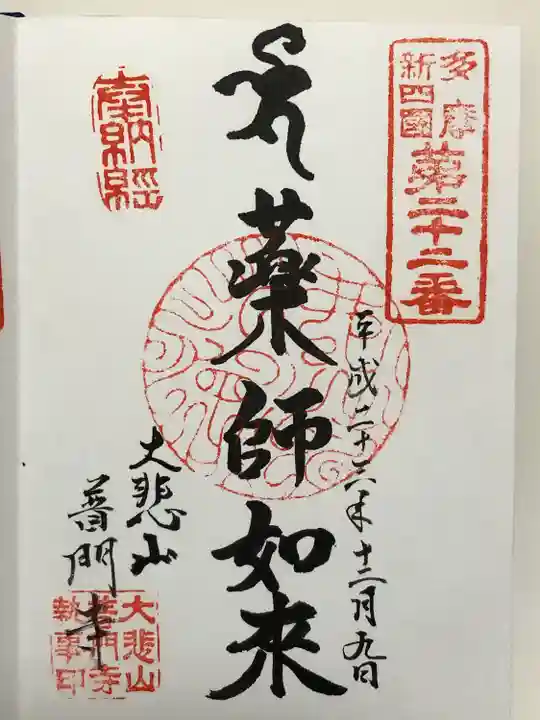 多摩
新四國
第二十二番
平成二十六年十二月九日
藥師如来
奉納経
大悲山
普門寺
大悲山
普門寺
執事印